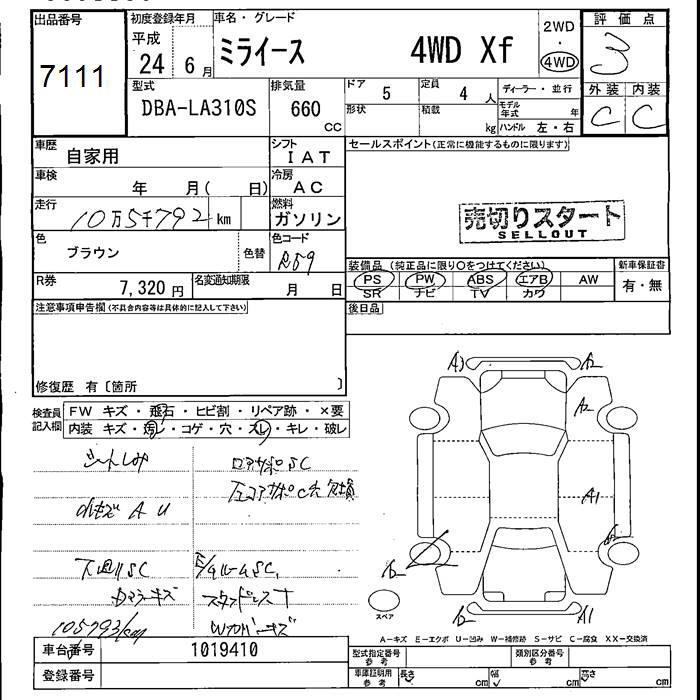 出品番号
7111
初度登録年月
平成
24 6月
車名・グレード
ミライース 4WD Xf
2WD
・
4WD
評価点
3
外装 内装
C C
型式
DBA-LA310S
排気量
660
CC
ドア
5
定員
4 人
形状
積載
kg
ディーラー・並行
モデル年式 年
ハンドル 左・右
車歴
自家用
シフト
IAT
車検
年 月( 日)
冷房
AC
走行
10万5千792 km
燃料
ガソリン
色
ブラウン
色替
色コード
R59
R券
7,320 円
名変通知期限
月 日
セールスポイント(正常に機能するものに限ります)
売切りスタート
SELLOUT
装備品 (純正品に限り〇をつけてください)
PS PW ABS エアB AW
SR ナビ TV カワ
新車保証書
有・無
後日品
注意事項申告欄(不具合内容等は具体的に記入して下さい)
修復歴 有〔箇所 〕
検査員
記入欄
FW キズ・飛石・ヒビ割・リペア跡・×要
内装 キズ・汚レ・コゲ・穴・スレ・キレ・破レ
シートしみ
小キズ A U
下廻りSC
105793/km
A3 A2
A2
A1
A1
スペア
A-キズ E-エクボ U-凹み W-補修跡 S-サビ C-腐食 XX-交換済
車台番号
1019410
登録番号
型式指定番号
参考
類別区分番号
参考
車庫証明用
参考
長さ cm
幅 cm
高さ cm